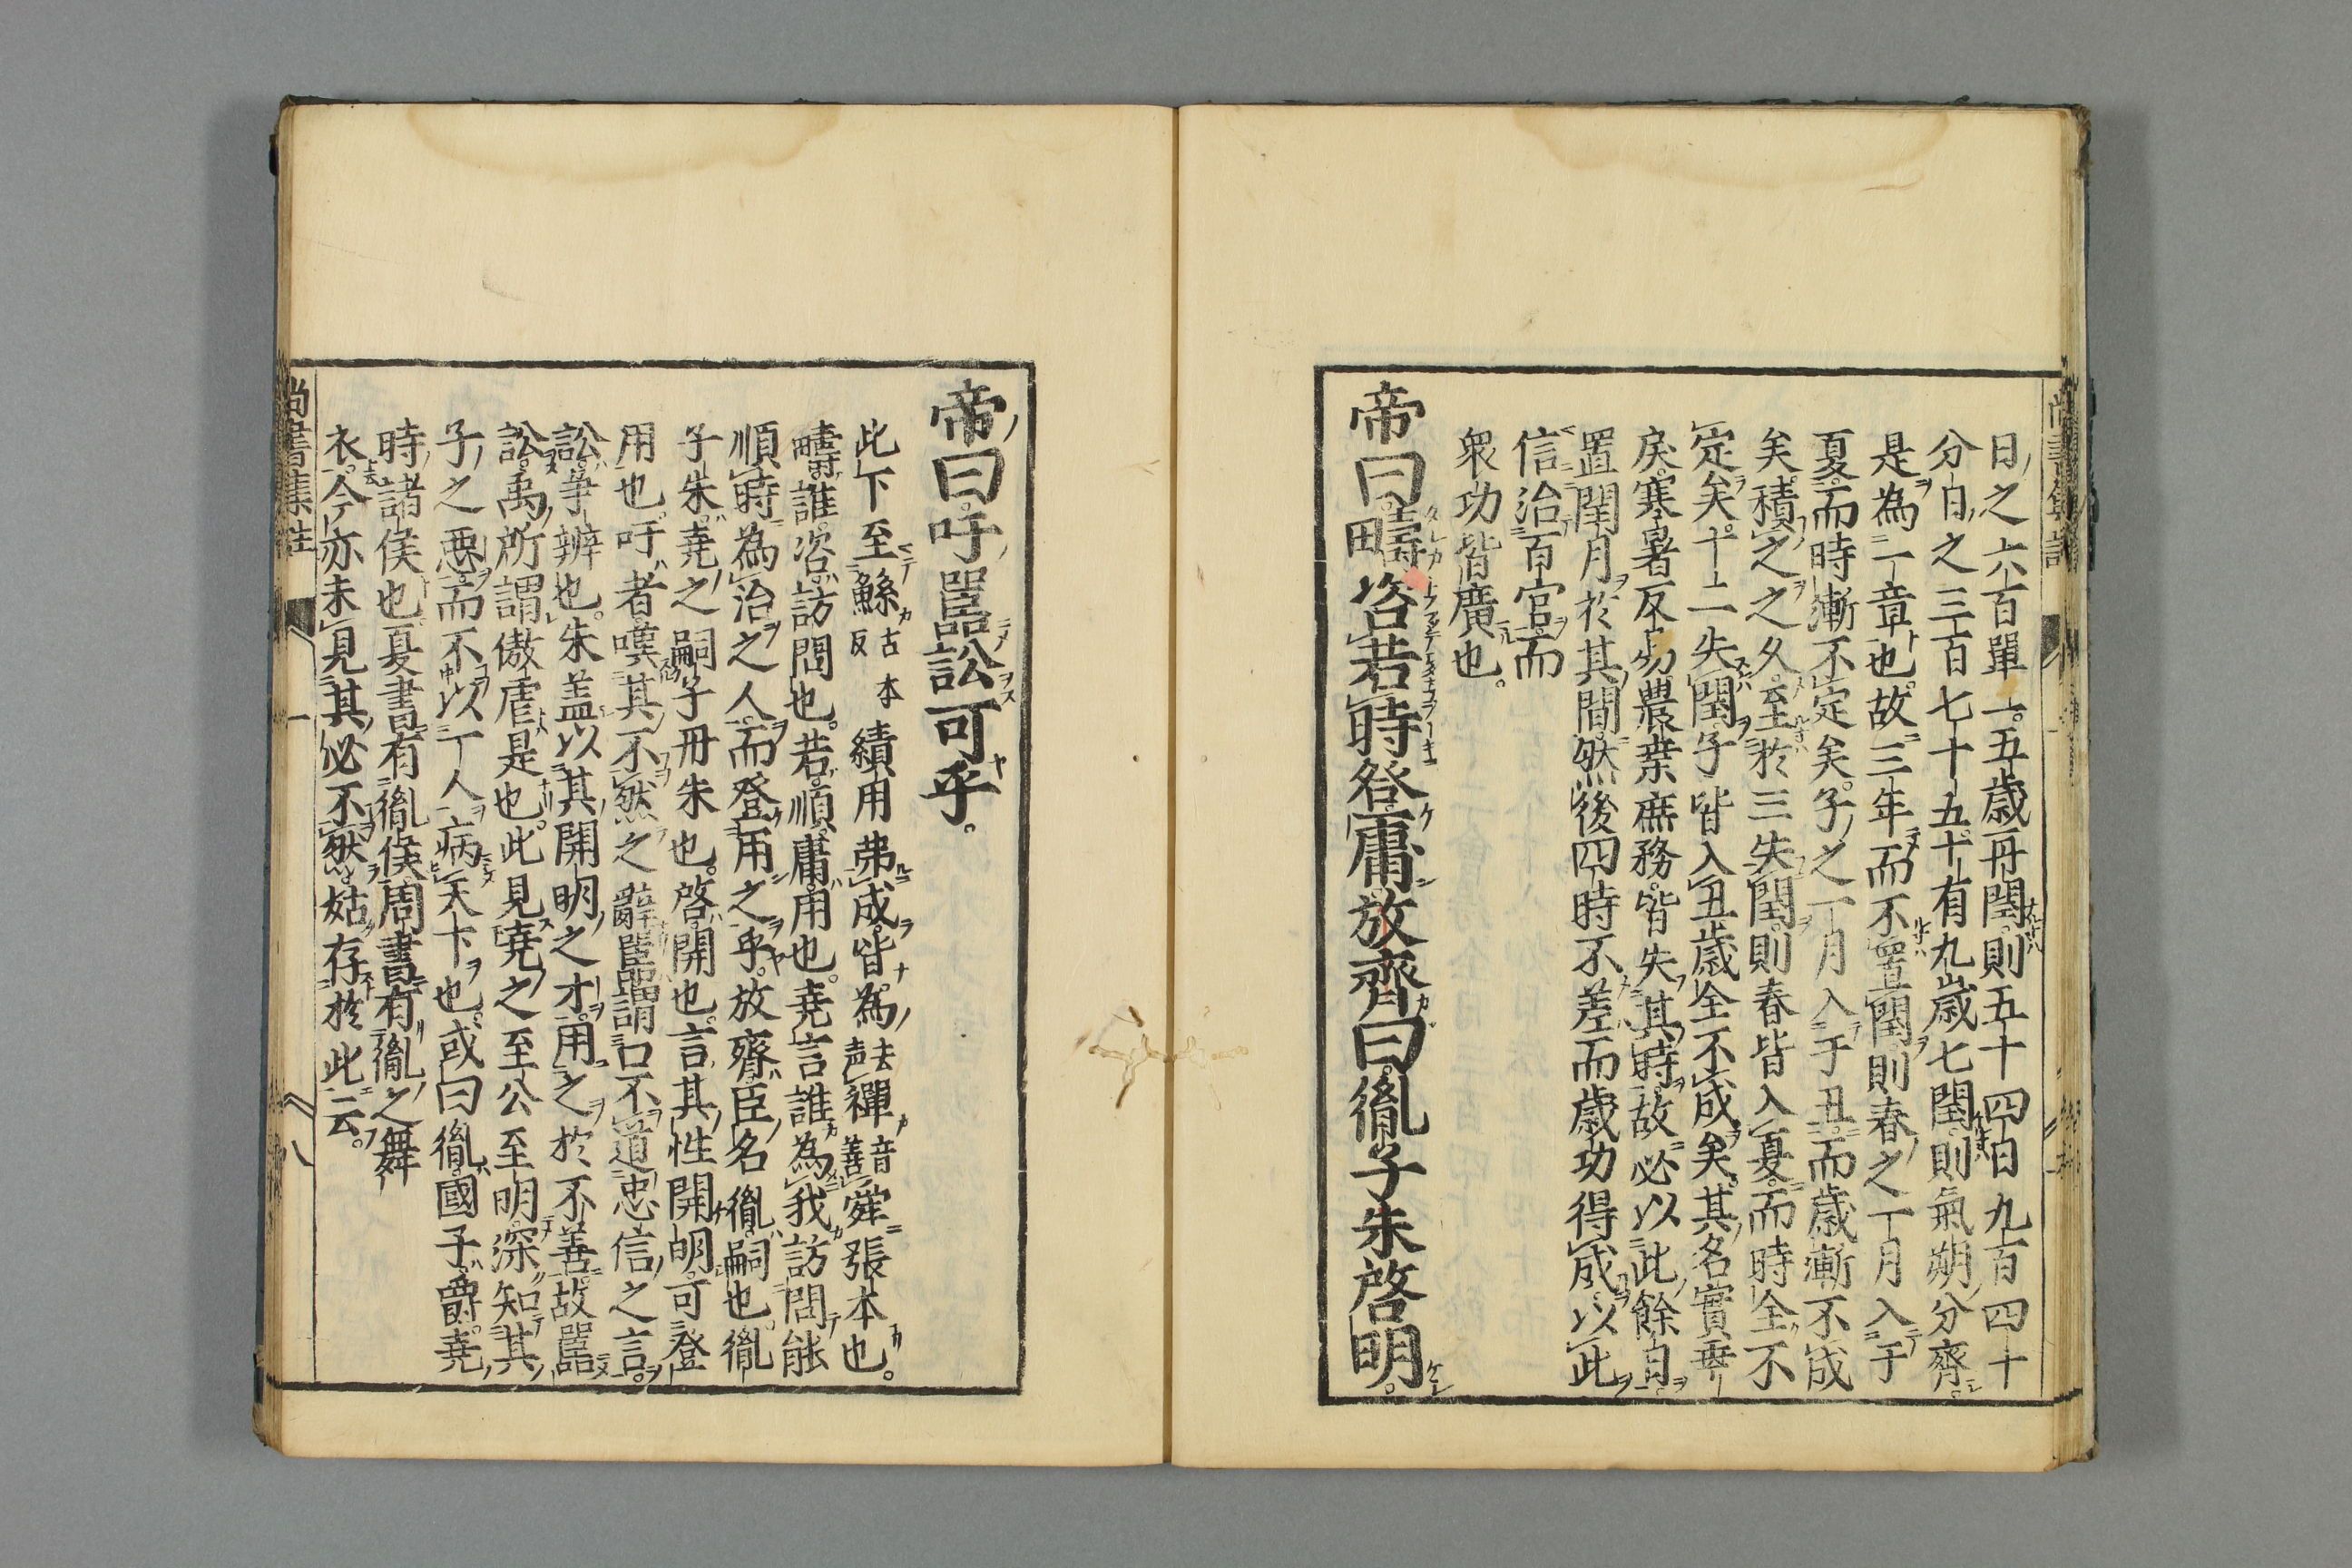 日之六百單一。五歳再閏。則五十四日九百四十
分日之三百七十五。十有九歳七閏。則氣朔分齊。
是為一章也。故三年而不置閏。則春之一月入于
夏。而時漸不定矣。子之一月入于丑。而歳漸不成
矣。積之之久。至於三失閏。則春皆入夏。而時全不
定矣。十二失閏。子皆入丑。歳全不成矣。其名實乖
戻。寒暑反易。農桒庶務。皆失其時。故必以此餘日。
置閏月於其間。然後四時不差。而歳功得成。以此
信治百官。而
衆功皆廣也。
帝曰。疇咨若時登庸。放齊曰。胤子朱啓明。
帝曰。吁。嚚訟可乎。
此下至鯀古本反績用弗成。皆為去声禪音善舜張本也。
疇。誰。咨。訪問也。若。順。庸。用也。堯言誰為我訪問能
順時為治之人。而登用之乎。放齊。臣名。胤。嗣也。胤
子朱。堯之嗣子丹朱也。啓。開也。言其性開明。可登
用也。吁者。嘆其不然之辭。嚚謂口不道忠信之言。
訟。爭辨也。朱盖以其開明之才。用之於不善。故嚚
訟。禹所謂傲虐是也。此見堯之至公至明。深知其
子之惡。而不以一人病天下也。或曰。胤。國。子。爵。堯
時諸侯也。夏書有胤侯。周書有胤之舞
衣。今亦未見其必不然。姑存於此云。
尚書集註 一 八